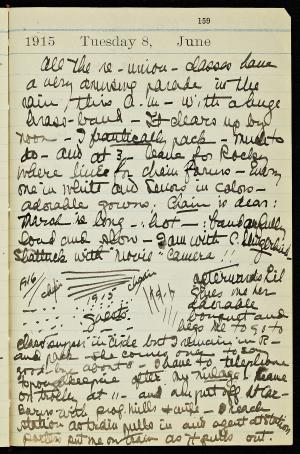 159
1915 Tuesday 8, June
All the re-union-classes have
a very amusing parade in the
rain, this a-m- with a huge
brass-band - It clears up by
noon - I frantically pack - much to
do - and at 3, leave for Rocky
where lines for chain forms - every
one in white and Seniors in colors -
adorable gowns. Chain is dear:
March is long - hot - : band awfully
loud and slow - I am with C.
Shattuck with "movie" Camera !!
1916 chain chain
1915
Guests
afterwards Lil
gives me her
adorable
bouquet and
begs me to go to
class supper in Circle but I remain in R-
and pack - she coming once to say
good-bye about 8 - I have to telephone
to Poughkeepsie after my - I leave
on trolley at 11 - and am put off at
with
station as train pulls in and agent at station
put me on train as it pulls out.